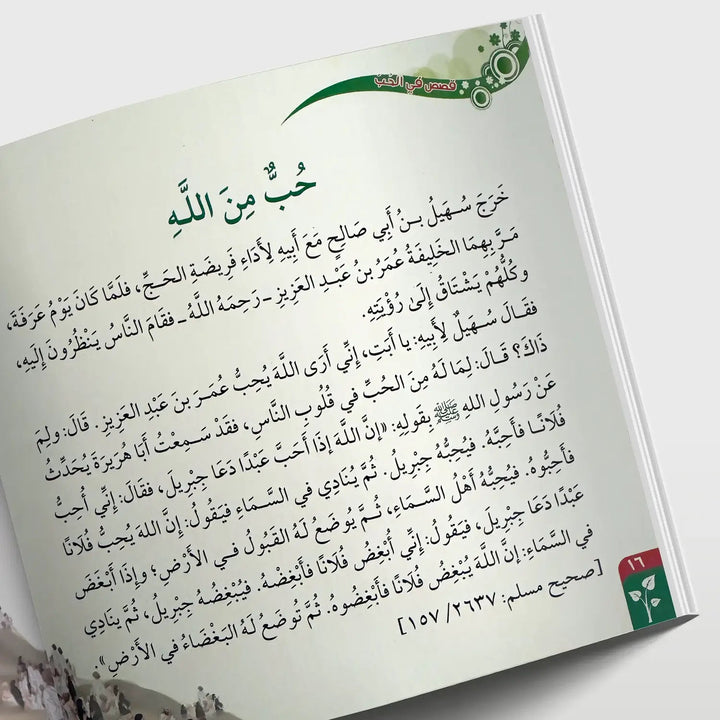 قصص في الحُبّ
حُبٌّ مِنَ اللَّهِ
خَرَجَ سُهَيلُ بنُ أَبِي صَالِحٍ مَعَ أَبِيهِ لِأَدَاءِ فَرِيضَةِ الحَجِّ، فَلَمَّا كَانَ يَوْمُ عَرَفَةَ،
مَرَّ بِهِمَا الخَلِيفَةُ عُمَرُ بنُ عَبْدِ العَزِيزِ - رَحِمَهُ اللَّهُ - فقَامَ النَّاسُ يَنْظُرُونَ إِلَيهِ،
وكُلُّهُمْ يَشْتَاقُ إِلَى رُؤْيَتِهِ.
فقَالَ سُهَيلٌ لِأَبِيهِ: يا أَبَتِ، إِنِّي أَرَى اللَّهَ يُحِبُّ عُمَرَ بنَ عَبْدِ العَزِيزِ. قَالَ: ولِمَ
ذَاكَ؟ قَالَ: لِمَا لَهُ مِنَ الحُبِّ في قُلُوبِ النَّاسِ، فقَدْ سَمِعتُ أَبَا هُرَيرَةَ يُحَدِّثُ
عَنْ رَسُولِ اللهِ ﷺ بقَولِهِ: «إِنَّ اللَّهَ إِذَا أَحَبَّ عَبْدًا دَعَا جِبْرِيلَ، فقَالَ: إِنِّي أُحِبُّ
فُلَانًا فأَحِبَّهُ. فيُحِبُّهُ جِبْرِيلُ. ثُمَّ يُنَادِي في السَّمَاءِ فيَقُولُ: إِنَّ اللهَ يُحِبُّ فُلَانًا
فأَحِبُّوهُ. فيُحِبُّهُ أَهْلُ السَّمَاءِ، ثُمَّ يُوضَعُ لَهُ القَبُولُ فِي الأَرْضِ؛ وإِذَا أَبْغَضَ
عَبْدًا دَعَا جِبْرِيلَ، فيَقُولُ: إِنِّي أُبْغِضُ فُلَانًا فأَبْغِضْهُ. فيُبْغِضُهُ جِبْرِيلُ، ثُمَّ يُنَادِي
في السَّمَاءِ: إِنَّ اللَّهَ يُبْغِضُ فُلَانًا فأَبْغِضُوهُ. ثُمَّ تُوضَعُ لَهُ البَغْضَاءُ في الأَرْضِ».
[صحيح مسلم: ٢٦٣٧/ ١٥٧]
١٦